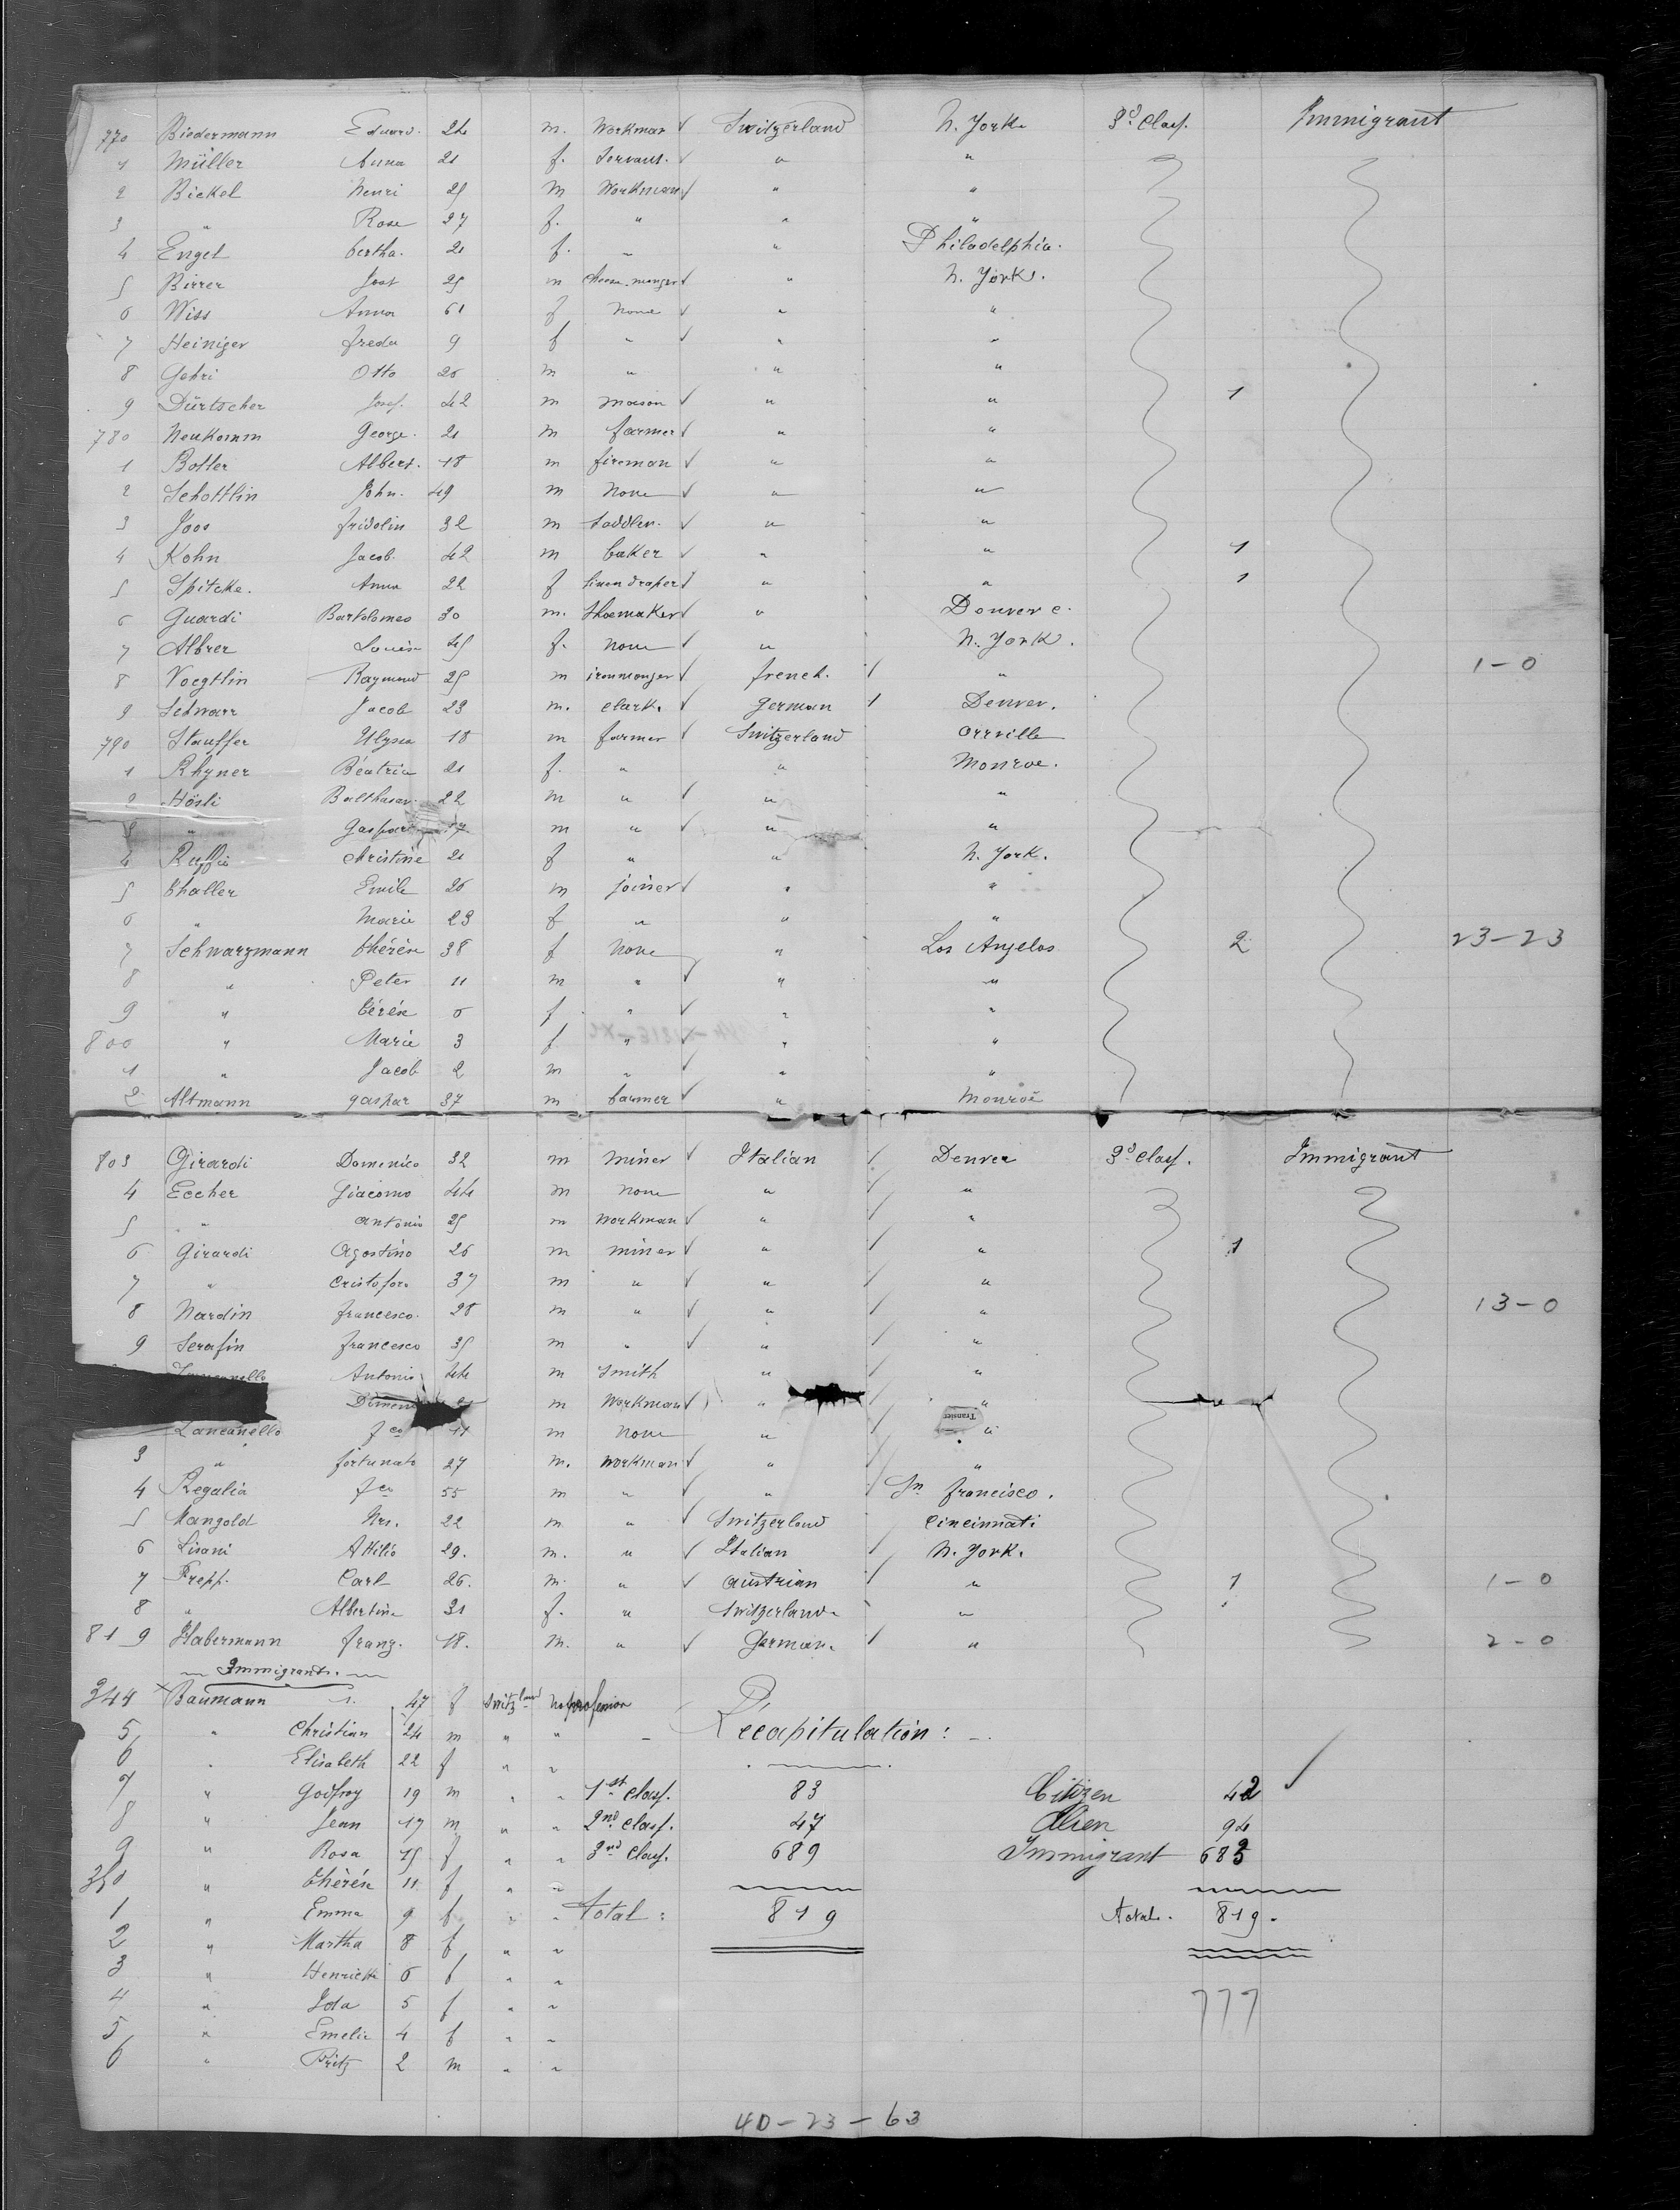 770 Biedermann Eduard. 24 m. Workman ✓ Switzerland N. York 3d Class. Immigrant
1 Müller Anna 21 f. Servant. ✓ " "
2 Bickel Henri 25 m Workman ✓ " "
3 " Rose 27 f. " " "
4 Engel bertha. 21 f. " " Philadelphia.
5 Birrer Jost 25 m cheese-monger ✓ " N. York.
6 Wiss Anna 61 f None ✓ " "
7 Heiniger freda 9 f " ✓ " "
8 Gehri Otto 26 m " " "
9 Dürtscher Josef. 42 m mason ✓ " " 1
780 Neukomm George. 21 m farmer ✓ " "
1 Botler Albert. 18 m fireman ✓ " "
2 Schottlin John. 49 m None ✓ " "
3 Joos fridolin 32 m Saddler. ✓ " "
4 Kohn Jacob. 42 m baker ✓ " " 1
5 Spitcke. Anna 22 f linen draper ✓ " " 1
6 Guardi Bartolomeo 30 m. Shoemaker ✓ " Denver c.
7 Albrer Louise 45 f. None ✓ " N. York.
8 Voegtlin Raymond 25 m ironmonger ✓ french. / " 1-0
9 Schwarr Jacob 23 m. clark. ✓ German / Denver.
790 Stauffer Ulyssa 18 m farmer ✓ Switzerland Orrville
1 Rhyner Béatrice 21 f. " " Monroe.
2 Hösli Balthasar. 22 m " ✓ " "
" Gaspar 17 m " ✓ " "
4 Ruffie Christine 21 f " " N. York.
5 Challer Emile 26 m joiner ✓ " "
6 " Marie 23 f " " "
7 Schwarzmann thérèse 38 f None " Los Angelos 2 23-23
8 " Peter 11 m " ✓ " "
9 " térése 6 f " ✓ " "
800 " Marie 3 f " ✓ " "
1 " Jacob 2 m " ✓ " "
2 Altmann gaspar 37 m farmer ✓ " Monroe
803 Girardi Domenico 32 m miner ✓ Italian / Denver 3d Class. Immigrant
4 Eccher Giacomo 44 m none " / "
5 " antonio 25 m workman ✓ " / "
6 Girardi Agostino 26 m miner ✓ " / " 1
7 " Cristoforo 37 m " ✓ " / "
8 Nardin francesco. 28 m " ✓ " / " 13-0
9 Serafin francesco 35 m " ✓ " / "
Antonio 44 m Smith " / "
m Workman ✓ " / "
Lancanello fco 11 m None " / " Transfer
3 " fortunato 27 m. workman ✓ " / "
4 Regalia fco 55 m " ✓ " / Sn francisco.
5 Mangold Nrs. 22 m " ✓ Switzerland Cincinnati
6 Lisani Attilio 29. m. " ✓ Italian / N. York.
7 Prepp. Carl 26. m. " ✓ austrian / " 1 1-0
8 " Albertine 31 f. " Switzerland "
819 Habermann franz. 18. m. " ✓ German. / " 2-0
Immigrants.
344 Baumann 47 f Switzland No profession
Recapitulation:
5 " Christian 24 m " "
6 " Elisabeth 22 f " "
7 " Godfroy 19 m " " 1st Class. 83 Citizen 42 ✓
8 " Jean 17 m " " 2nd Class. 47 Alien 94
9 " Rosa 15 f " " 3rd Class. 689 Immigrant 683
350 " thérèse 11 f " "
1 " Emma 9 f " " Total: 819 Total. 819.
2 " Martha 8 f " "
3 " Henriette 6 f " "
4 " Ida 5 f " " 777
5 " Emelie 4 f " "
6 " Fritz 2 m " "
40-23-63